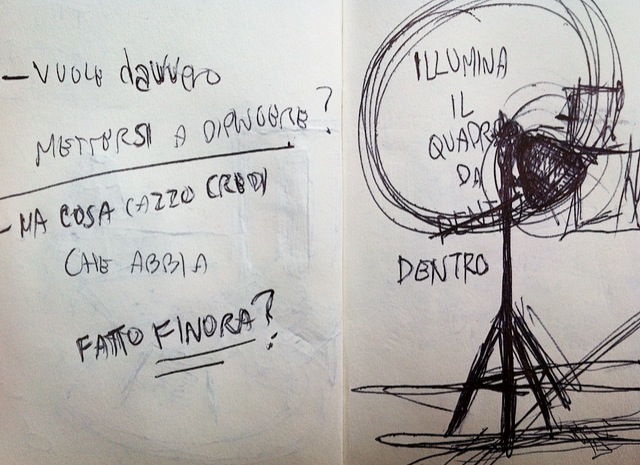 – VUOLE davvero
METTERSI A DIPINGERE?
– MA COSA CAZZO CREDI
CHE ABBIA
FATTO FINORA?
ILLUMINA
IL
QUADRO
DA
DENT
DENTRO